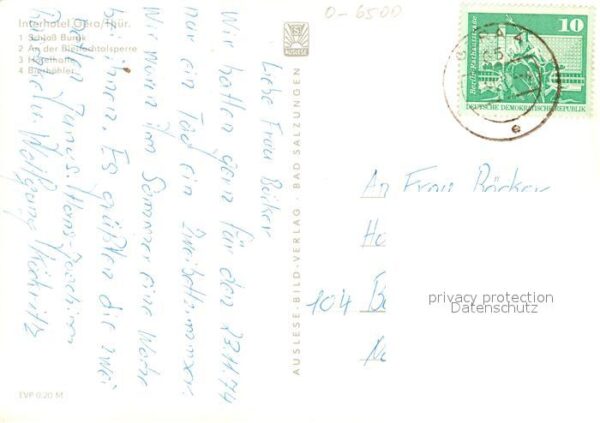 Interhotel Gera/Thür.
1 Schloß Burgk
2 An der Bleilochtalsperre
3 Hotelhalle
4 Bierhöhler
EVP 0,20 M
AUSLESE-BILD-VERLAG · BAD SALZUNGEN
0-6500
Liebe Frau Böcker
Wir hätten gern für den 23.11.74
nur ein Tag ein Zweibettzimmer.
Wir waren im Sommer eine Woche
bei ihnen. Es grüßen die zwei
Jungs. Hans-Joachim
Wolfgang
10
Berlin, Rathausstraße
DEUTSCHE DEMOKRATISCHE REPUBLIK
An Frau Böcker
104
privacy protection
Datenschutz